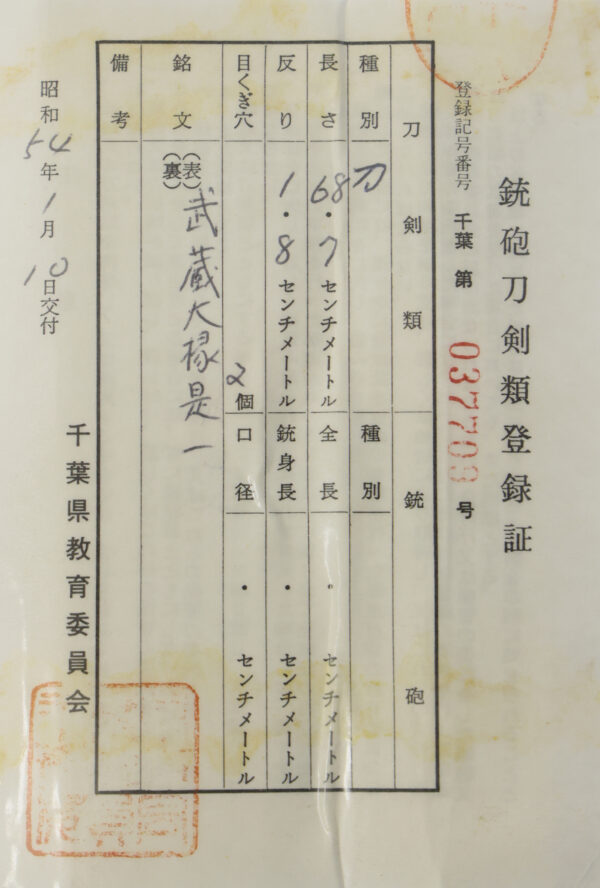 銃砲刀剣類登録証
登録記号番号 千葉 第 037709 号
刀剣類 銃砲
種別 刀 種別
長さ 68・7 センチメートル 全長 ・ センチメートル
反り 1・8 センチメートル 銃身長 ・ センチメートル
目くぎ穴 2個 口径 ・ センチメートル
銘文 (表) 武蔵大掾是一
(裏)
備考
昭和54年1月10日交付
千葉県教育委員会